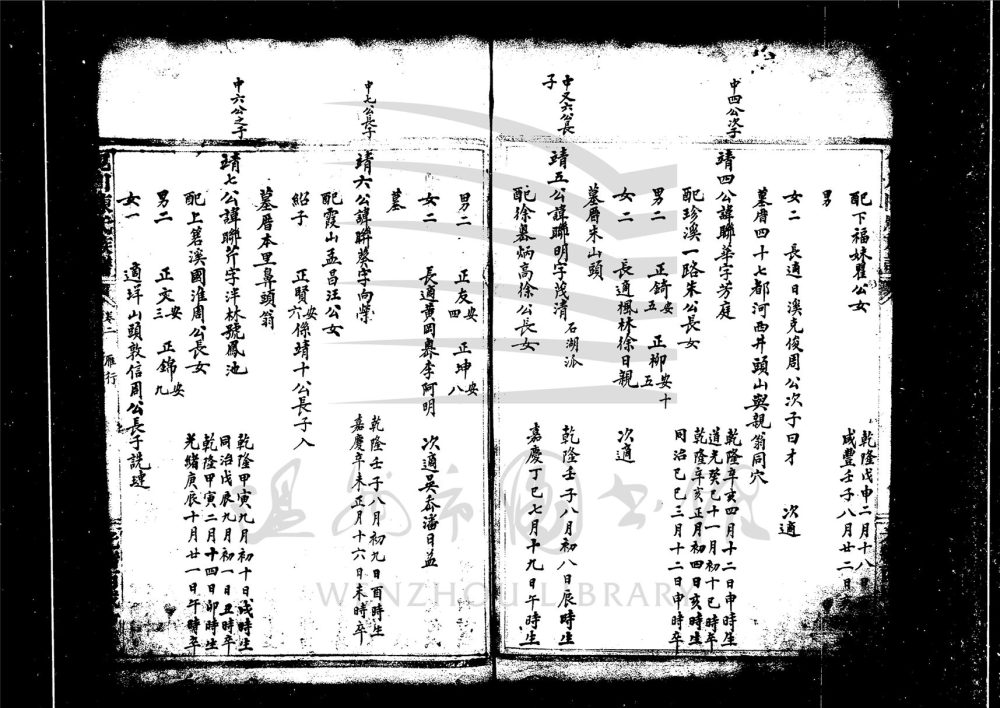 配下福妹瞿公女
乾隆戊申二月十八日
咸豐壬子八月廿二日
男
女二 長適日溪克俊周公次子曰才 次適
墓厝四十七都河西井頭山與親翁同穴
申四公次子
靖四公諱聯華字芳庭
乾隆辛亥四月十二日申時生
道光癸巳十一月初十巳時卒
配珍溪一路朱公長女
乾隆辛亥正月初四日亥時生
同治己巳三月十二日申時卒
男二 正錡安五 正柳安十五
女二 長適楓林徐日親 次適
墓厝朱山頭
申又六公長子
靖五公諱聯明字茂清 石湖派
乾隆壬子八月初八日辰時生
配徐岙炳高徐公長女
嘉慶丁巳七月十九日午時生
男二 正友安四 正坤安八
女二 長適黃岡岙李阿明 次適吳岙潘日益
墓
申七公長子
靖六公諱聯葵字向榮
乾隆壬子八月初九日酉時生
嘉慶辛未正月十六日未時卒
配霞山孟昌汪公女
紹子 正賢安六係靖十公長子入
墓厝本里鼻頭翁
申六公之子
靖七公諱聯芹字泮林號鳳池
乾隆甲寅九月初十日戌時生
同治戊辰九月初一日丑時卒
配上箬溪國淮周公長女
乾隆甲寅二月十四日卯時生
光緒庚辰十月廿一日午時卒
男二 正文安三 正錦安九
女一 適垟山頭敦信周公長子說璉
卷二 雁行
溫州市圖書館
WENZHOU LIBRARY